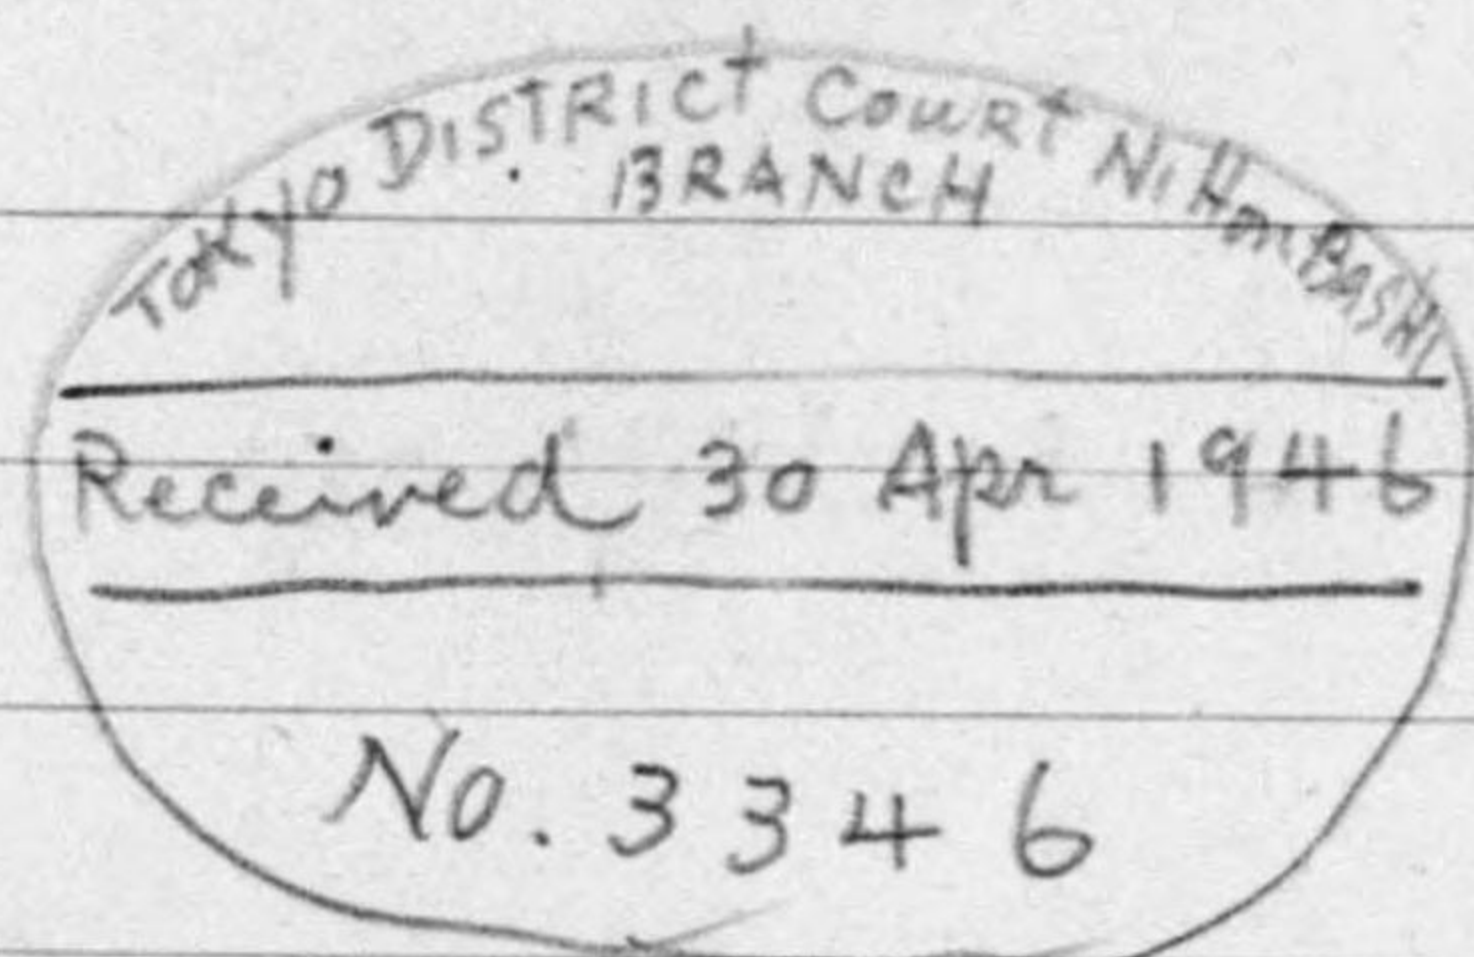 TOKYO DISTRICT COURT NIHONBASHI
BRANCH
Received 30 Apr 1946
No. 3346